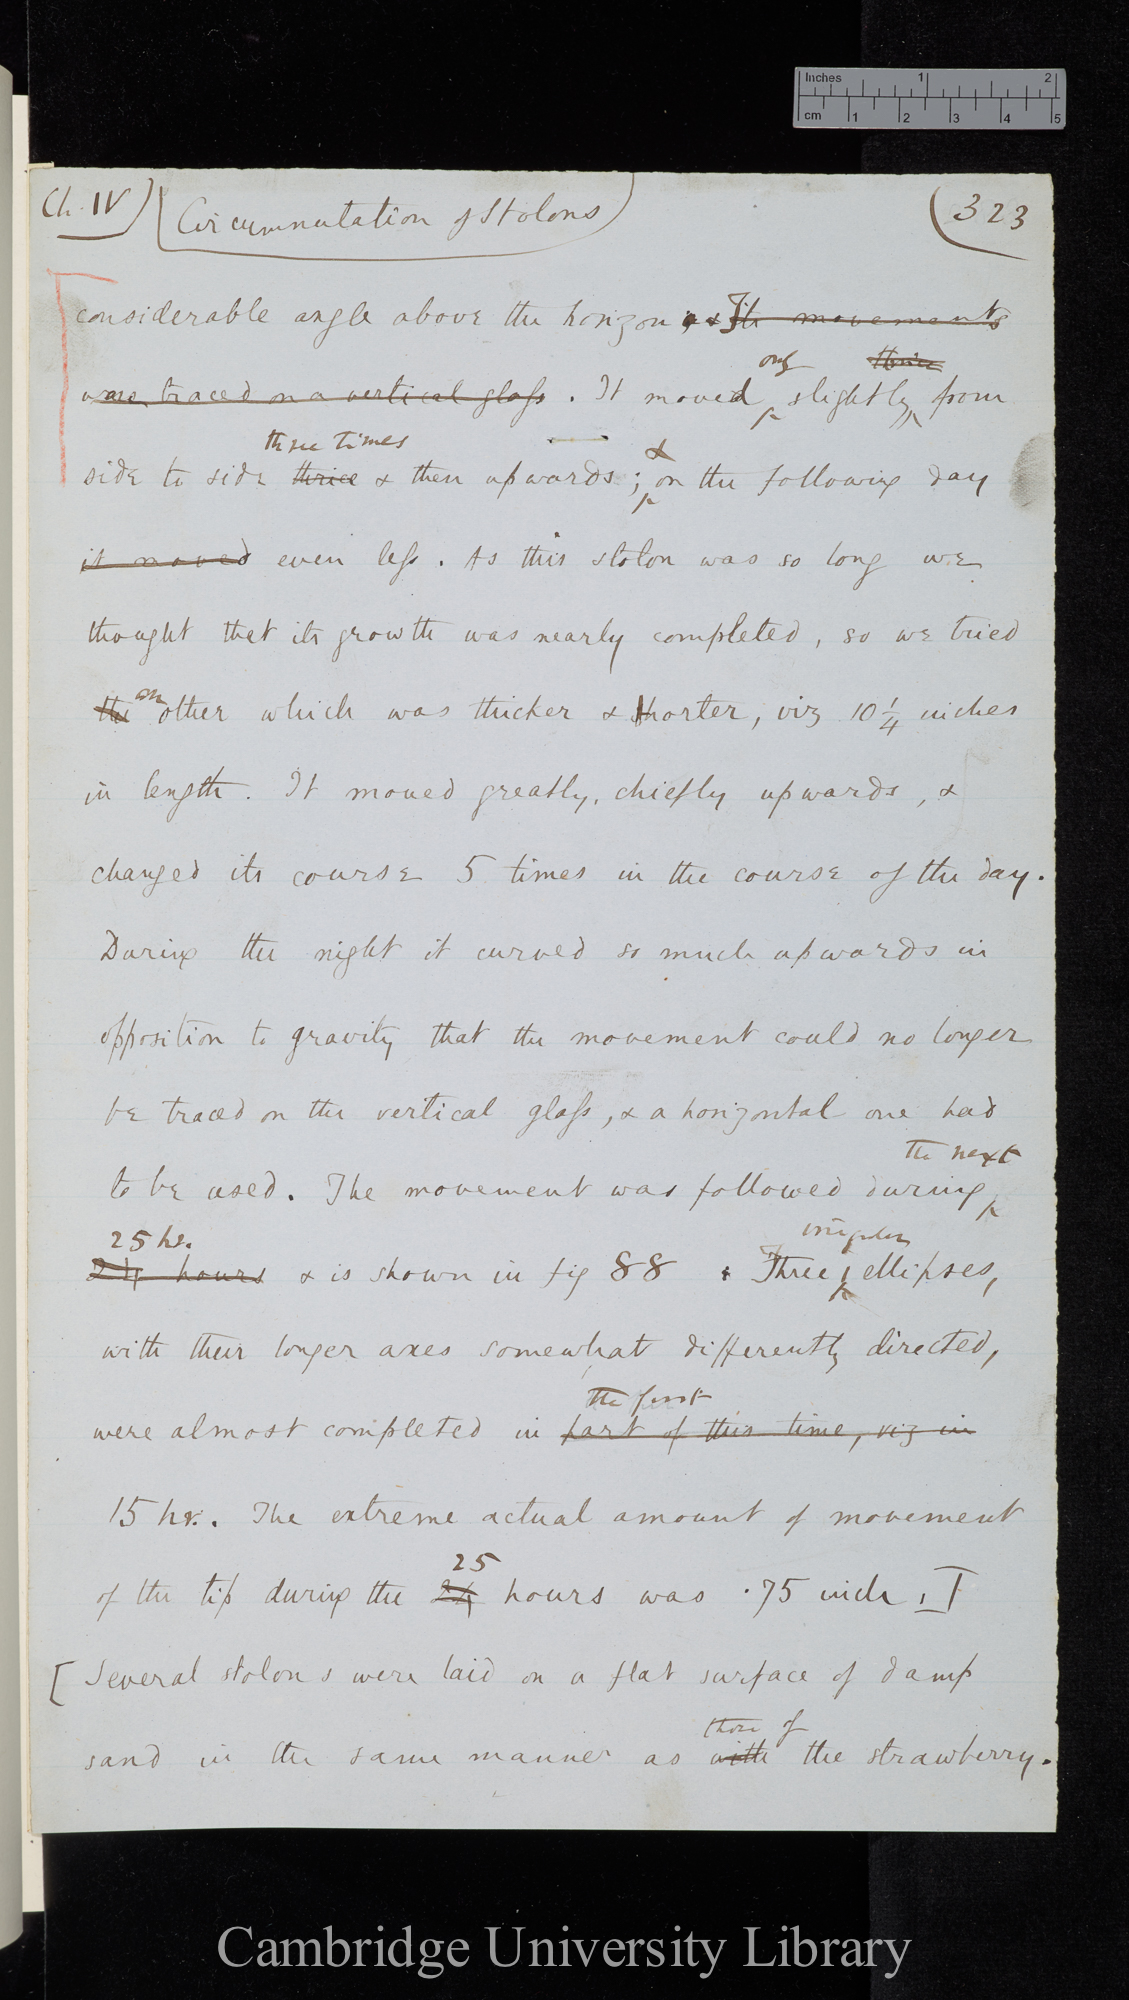 Inches 1 2
cm 1 2 3 4 5
Ch. IV) (Circumnutation of Stolons) (323
considerable angle above the horizon, & Its movements
were traced on a vertical glass. It moved only slightly thrice from
side to side thrice three times & then upwards; & on the following day
it moved even less. As this stolon was so long we
thought that its growth was nearly completed, so we tried
the another which was thicker & shorter, viz 10 1/4 inches
in length. It moved greatly, chiefly upwards, &
changed its course 5 times in the course of the day.
During the night it curved so much upwards in
opposition to gravity that the movement could no longer
be traced on the vertical glass, & a horizontal one had
to be used. The movement was followed during the next
24 hours 25 hr. & is shown in fig 88. Three irregular ellipses,
with their longer axes somewhat differently directed,
were almost completed in part of this time, viz in the first
15 hr.. The extreme actual amount of movement
of the tip during the 24 25 hours was .75 inch.
[Several stolons were laid on a flat surface of damp
sand in the same manner as with those of the strawberry.
Cambridge University Library